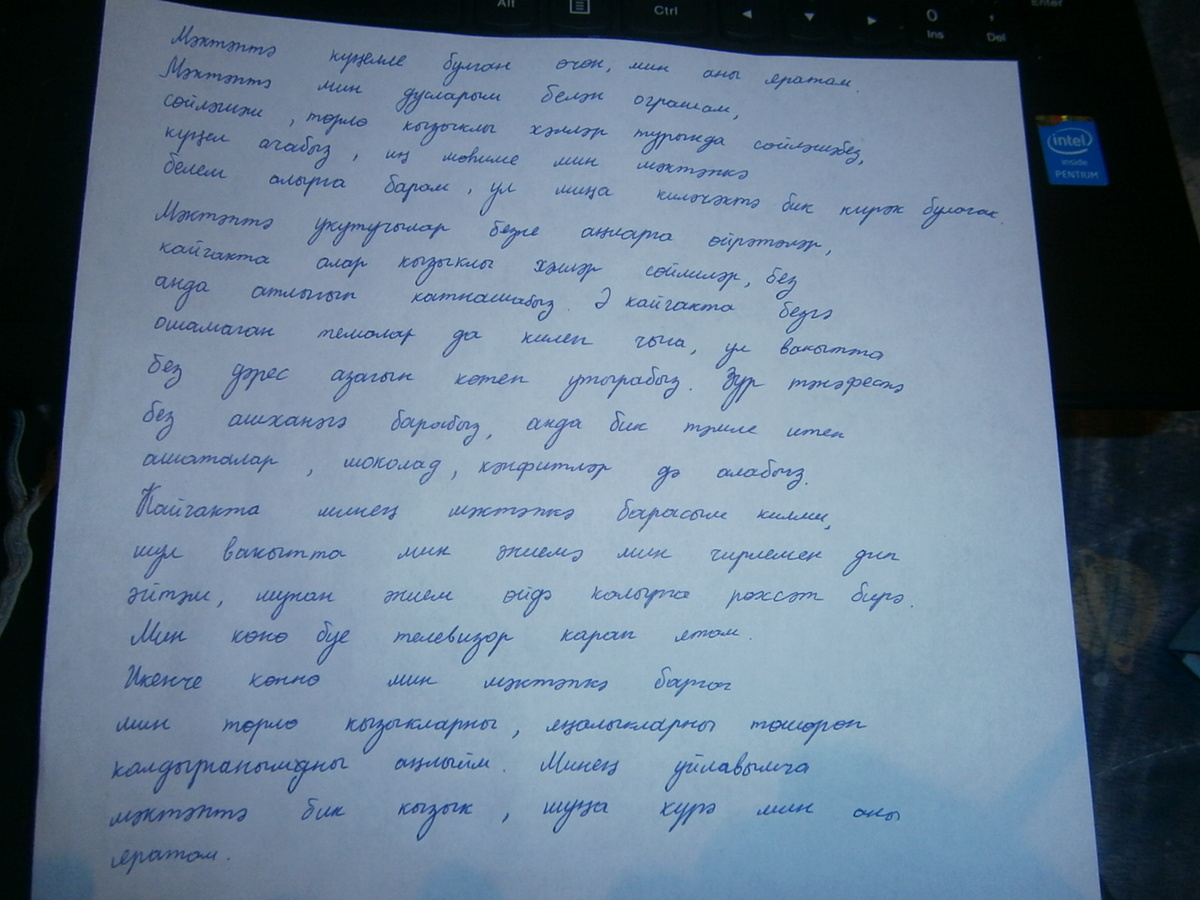 Alt
Ctrl
0
Ins
Del
Enter
intel
inside
PENTIUM
Мәктәптә күңелле булган өчен, мин аны яратам.
Мәктәптә мин дусларым белән ограшам,
сөйләшәм, төрлө кызыклы хәлләр турында сөйләшәбез,
күңел ачабыз, иң мөһиме мин мәктәпкә
белем алырга барам, ул миңа киләчәктә бик кирәк булачак.
Мәктәптә укутучылар безне аңларга өйрәтәләр,
кайчакта алар кызыклы хәлләр сөйлиләр, без
анда атлыгып катнашабыз. Ә кайчакта безгә
ошамаган темалар да килеп чыга, ул вакытта
без дәрес азагын көтеп утырабыз. Зур тәнәфестә
без ашханәгә барабыз, анда бик тәмле итеп
ашаталар, шоколад, кәнфитләр дә алабыз.
Кайчакта минең мәктәпкә барасым килми,
шул вакытта мин әниемә мин чирлемен дип
әйтәм, шуннан әнием өйдә калырга рөхсәт бирә.
Мин көнө буе телевизор карап ятам.
Икенче көннө мин мәктәпкә баргач
мин төрлө кызыкларны, яңалыкларны төшөрөп
калдырганымдны аңлыйм. Минең уйлавымча
мәктәптә бик кызык, шуңа күрә мин аны
яратам.